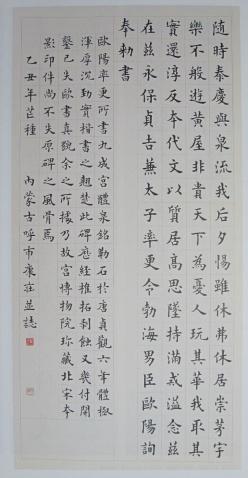 隨時泰慶與泉流我后夕惕雖休弗休居崇茅宇
樂不般遊黃屋非貴天下為憂人玩其華我取其
實還淳反本代文以質居高思墜持滿戒溢念茲
在茲永保貞吉兼太子率更令勃海男臣歐陽詢
奉勅書
歐陽率更所書九成宮醴泉銘勒石於唐貞觀六年體極
渾厚沉勁實楷書之翹楚此碑歷經推拓剥蝕又幾付開
鑿已失歐書真貌余之所據乃故宮博物院珍藏北宋本
影印件尚不失原碑之風骨焉
乙丑年芒種 內蒙古呼市康莊並誌